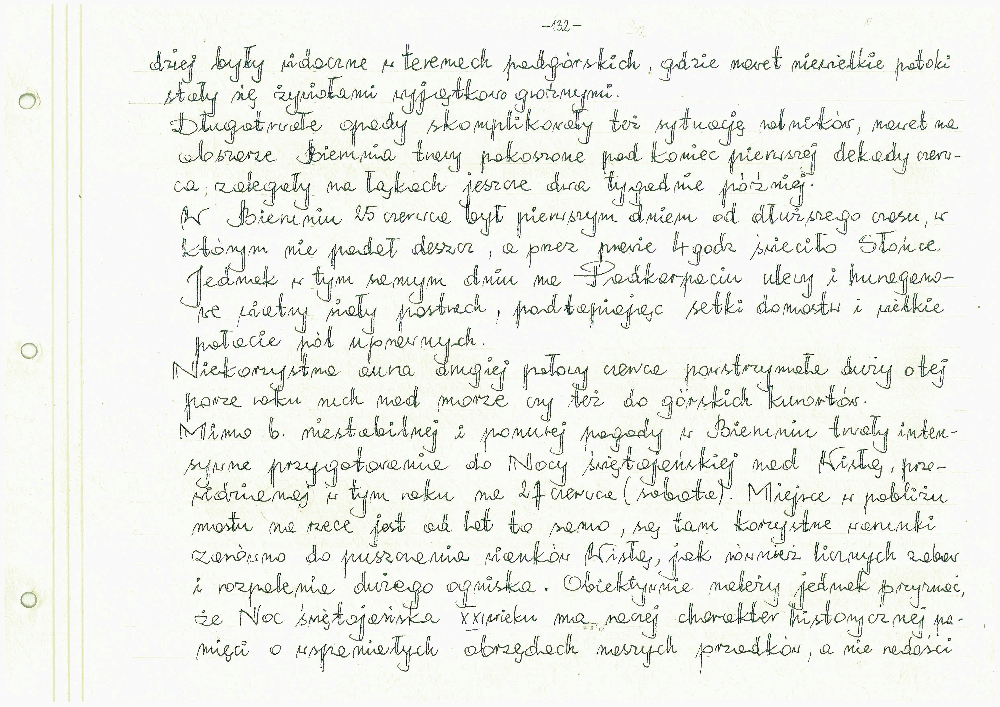 -132-
dziej były widoczne w terenach podgórskich, gdzie nawet niewielkie potoki
stały się żywiołami wyjątkowo groźnymi.
Długotrwałe opady skomplikowały też sytuację rolników, nawet na
obszarze Bierunia trawy pokoszone pod koniec pierwszej dekady czerw-
ca, zalegały na łąkach jeszcze dwa tygodnie później.
W Bieruniu 25 czerwca był pierwszym dniem od dłuższego czasu, w
którym nie padał deszcz, a przez prawie 4 godz świeciło Słońce
Jednak w tym samym dniu na Podkarpaciu ulewy i huragano-
we wiatry siały postrach, podtapiając setki domostw i wielkie
połacie pól uprawnych.
Niekorzystna aura drugiej połowy czerwca powstrzymała duży o tej
porze roku ruch nad morze czy też do górskich kurortów.
Mimo b. niestabilnej i ponurej pogody w Bieruniu trwały inten-
sywne przygotowania do Nocy świętojańskiej nad Wisłą, prze-
widzianej w tym roku na 27 czerwca (sobota). Miejsce w pobliżu
mostu na rzece jest od lat to samo, są tam korzystne warunki
zarówno do puszczania wianków Wisłą, jak również licznych zabaw
i rozpalenia dużego ogniska. Obiektywnie należy jednak przyznać,
że Noc świętojańska XXI wieku ma raczej charakter historycznej pa-
mięci o wspaniałych obrzędach naszych przodków, a nie radości